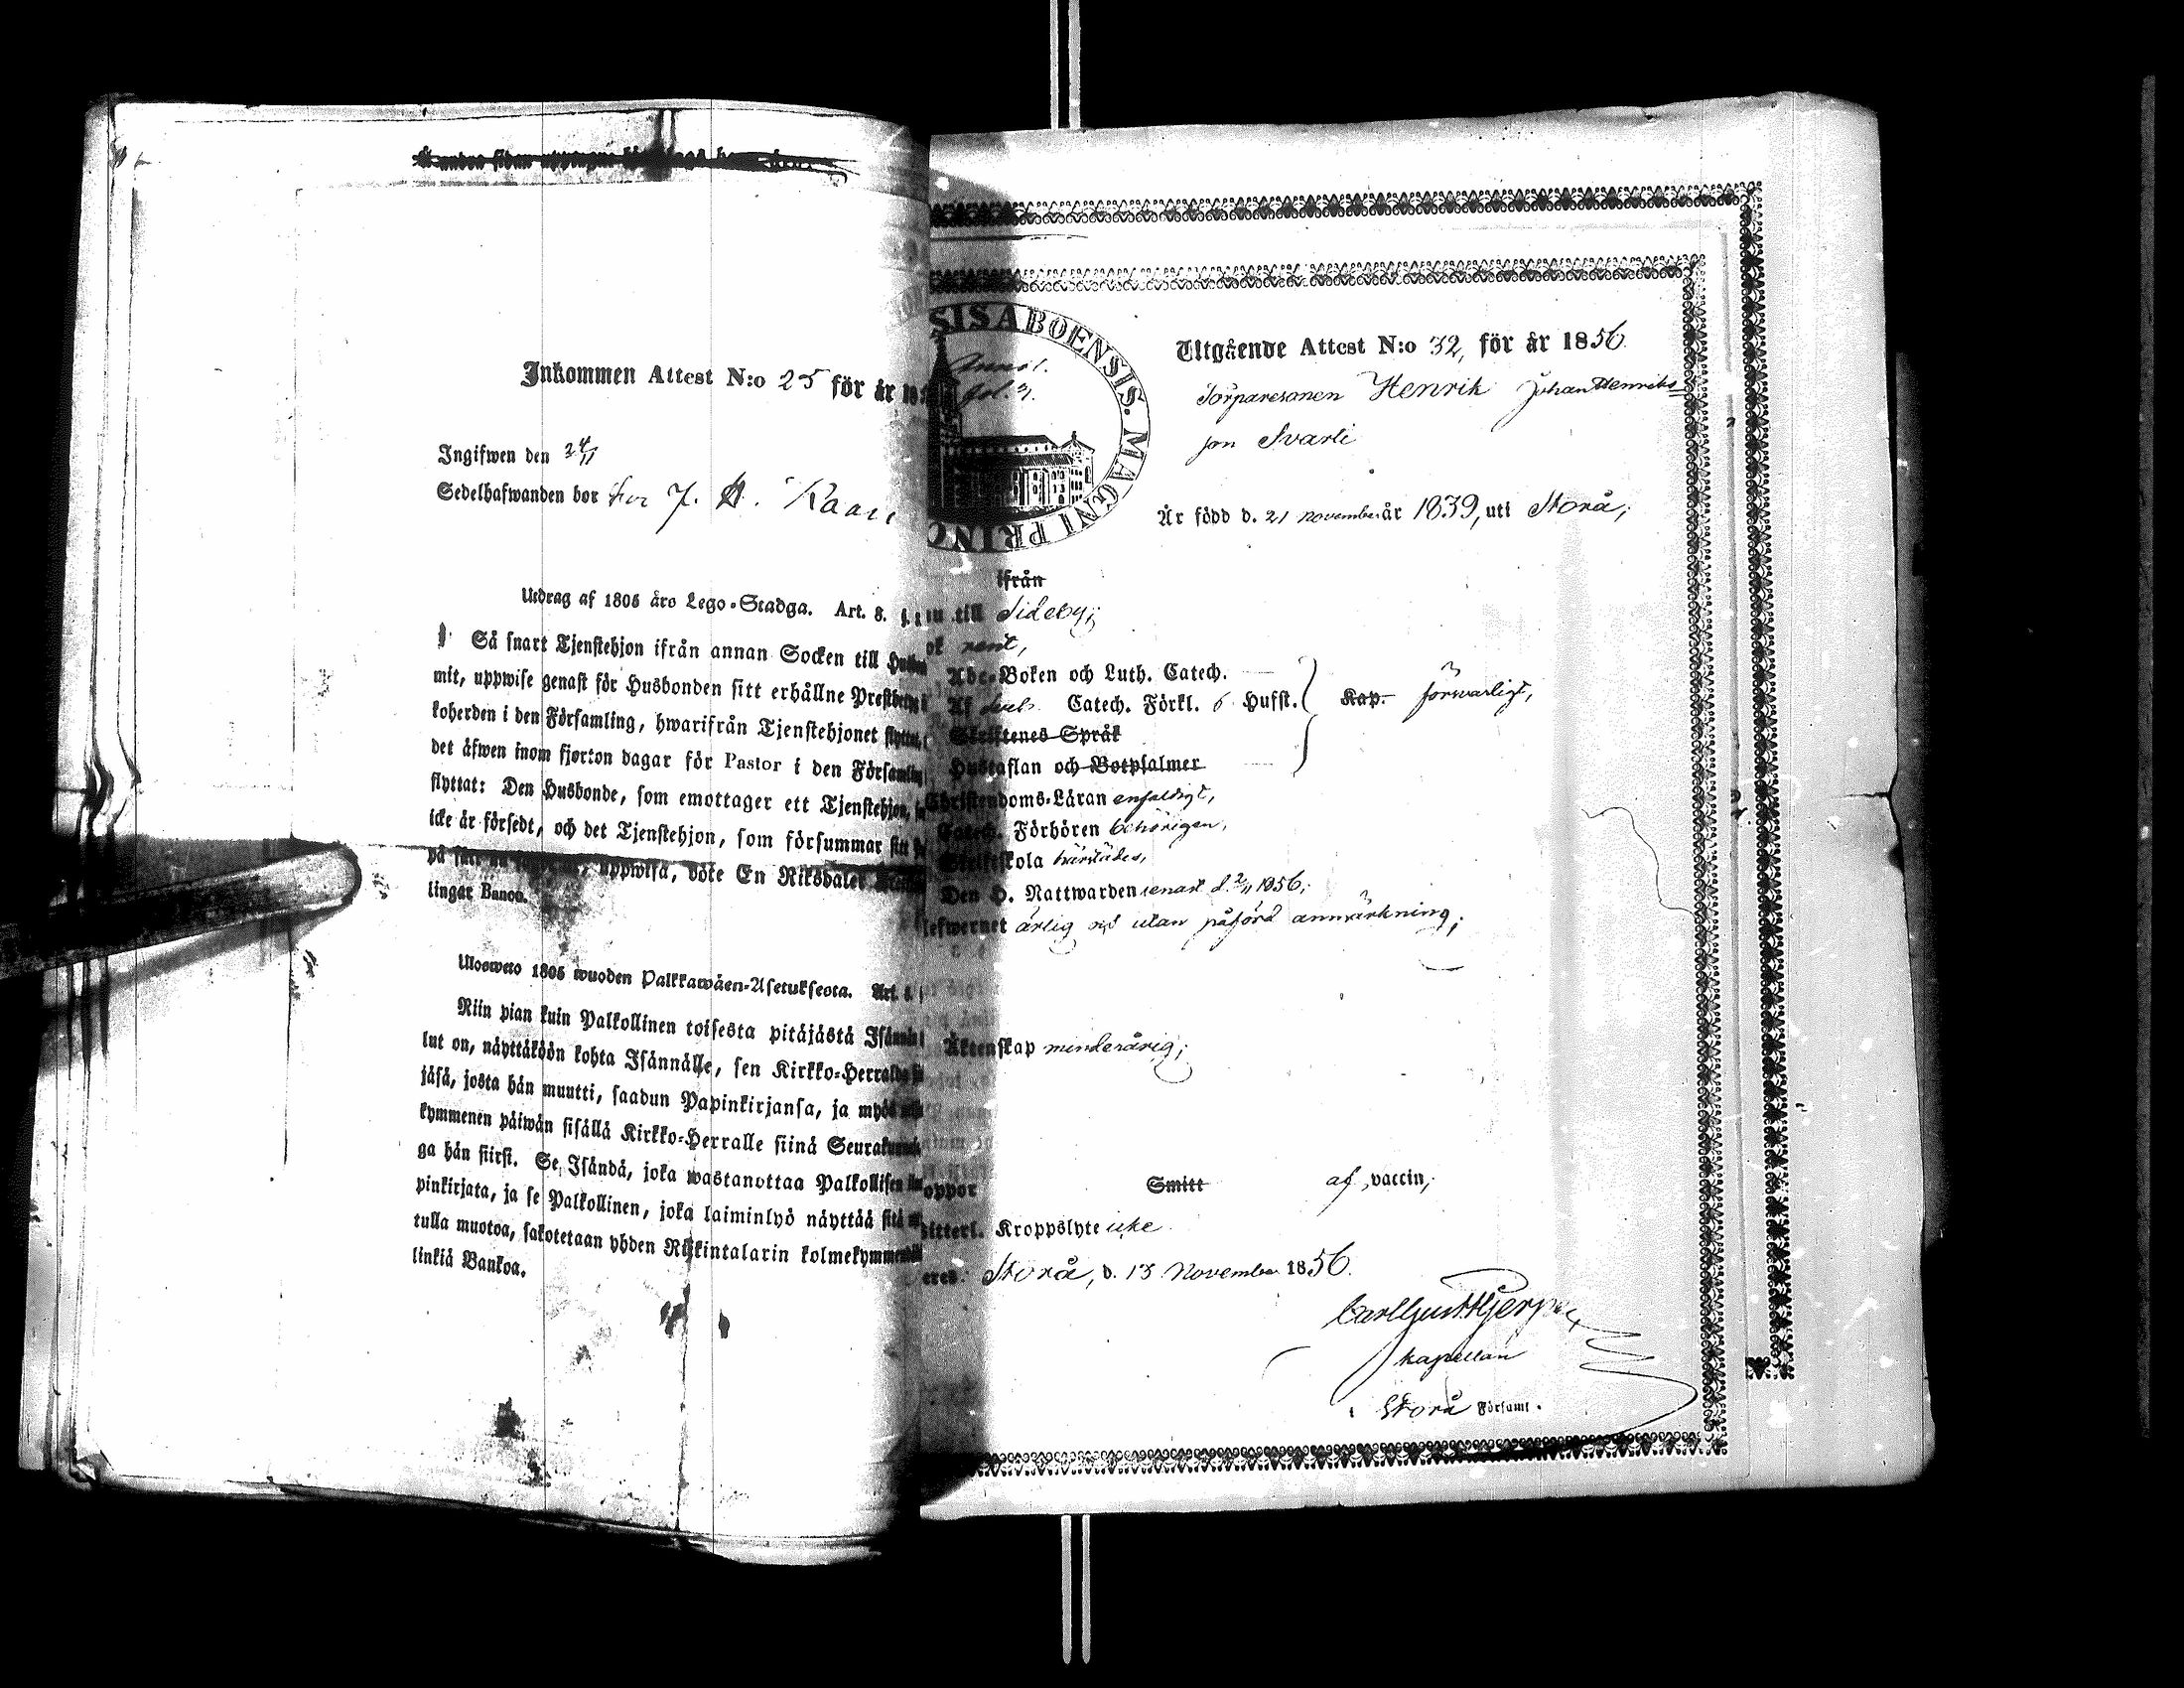 Inkommen Attest N:o 25 för år 18
Ingifwen den 24/11
Sedelhafwanden bor hos J. H. Kaas
Utdrag af 1805 års Lego-Stadga. Art. 8.
Så snart Tjenstehjon ifrån annan Socken till
mit, uppwise genast för Husbonden sitt erhållne
koherden i den Församling, hwarifrån Tjenstehjonet
det äfwen inom fjorton dagar för Pastor i den
flyttat: Den Husbonde, som emottager ett Tjenstehjon,
icke är försedt, och det Tjenstehjon, som försummar sitt
på sätt uppwisa, böte En Riksdaler
lingar Banco.
Uloswero 1805 wuoden Palkkawäen-Asetuksesta. Art. 8
Niin pian kuin Palkollinen toisesta pitäjästä
lut on, näyttäköön kohta Isännälle, sen Kirkko-Herralda
jäsä, josta hän muutti, saadun Papinkirjansa, ja myös
kymmenen päiwän sisällä Kirkko-Herralle siinä
ga hän siirst. Se Isändä, joka wastanottaa Palkollisen
pinkirjata, ja se Palkollinen, joka laiminlyö näyttää sitä
tulla muotoa, sakotetaan yhden Riikintalarin
linkiä Bankoa.
SIS ABOENSIS. MAGNI PRINC
fol. 3.
Utgående Attest N:o 32, för år 1856.
Torparesonen Henrik Johan Henriks
son Svarti
Är född d. 21 november år 1839, uti Storå;
ifrån
till Sideby;
rent,
Abc-Boken och Luth. Catech.
Af Catech. Förkl. 6 Hufst. Kap. försvarligt,
Skriftenes Språk
Hustaflan och Botpsalmer
Christendoms-Läran enfaldigt,
Catech. Förhören behörigen,
Skriftskola härstädes,
Den H. Nattwarden senast d. 2/11 1856;
lefwernet ärlig och utan påförd anmärkning;
Äktenskap minderårig;
oppor Smitt af vaccin;
Kroppslyte icke
eres Storå, d. 13 November 1856.
Carl Gust Hjerpe
kapellan
i Storå Församl.